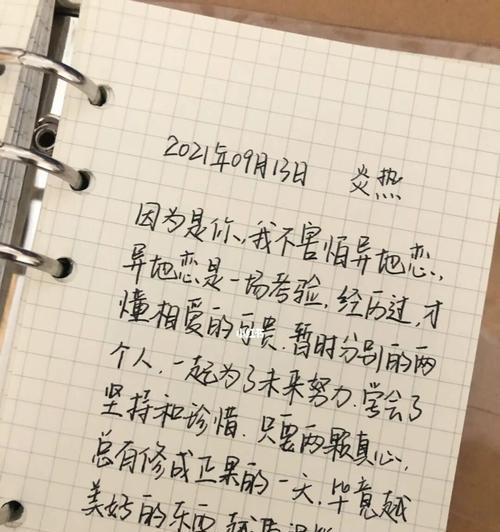 2021年09月13日 炎热
因为是你,我不害怕异地恋,
异地恋是一场考验,经历过,才
懂相爱的可贵.暂时分别的两
个人,一起为了未来努力.学会了
坚持和珍惜.只要两颗真心,
总有修成正果的一天,毕竟越
美好的东西